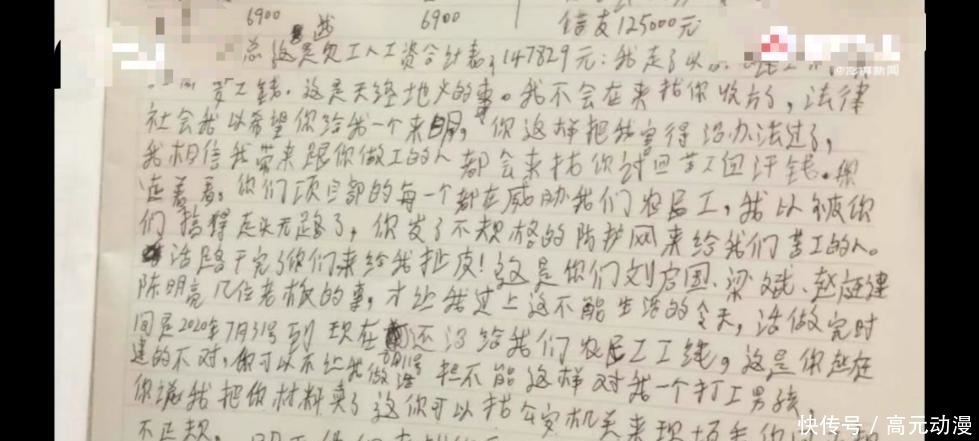 6900 6900 结支125000元
总 这是欠工人工资合计表 147829元:我走了以
苦工钱。这是天经地义的事。我不会在来找你收的了,法律
社会我以希望你给我一个来明,你这样把我害得没办法过了,
我相信我带来跟你做工的人都会来找你讨回苦工血汗钱。
走着看。你们项目部的每一个都在威胁我们农民工,我以被你
们搞得走头无路了,你发了不规格的防护网来给我们苦工的人。
活路干完了你们来给我扯皮!这是你们刘启国、梁斌、赵庭建
陈明亮几位老板的事,才让我过上这不能生活的今天,活做完时
间是2020年7月31号到现在还没给我们农民工工钱,这是你赵庭
建的不对,你可以不让我做活 但不能这样对我一个打工男孩
你说我把你材料卖了这你可以找公安机关来现场
不足规,
@澎湃新闻
快传号/高元动漫